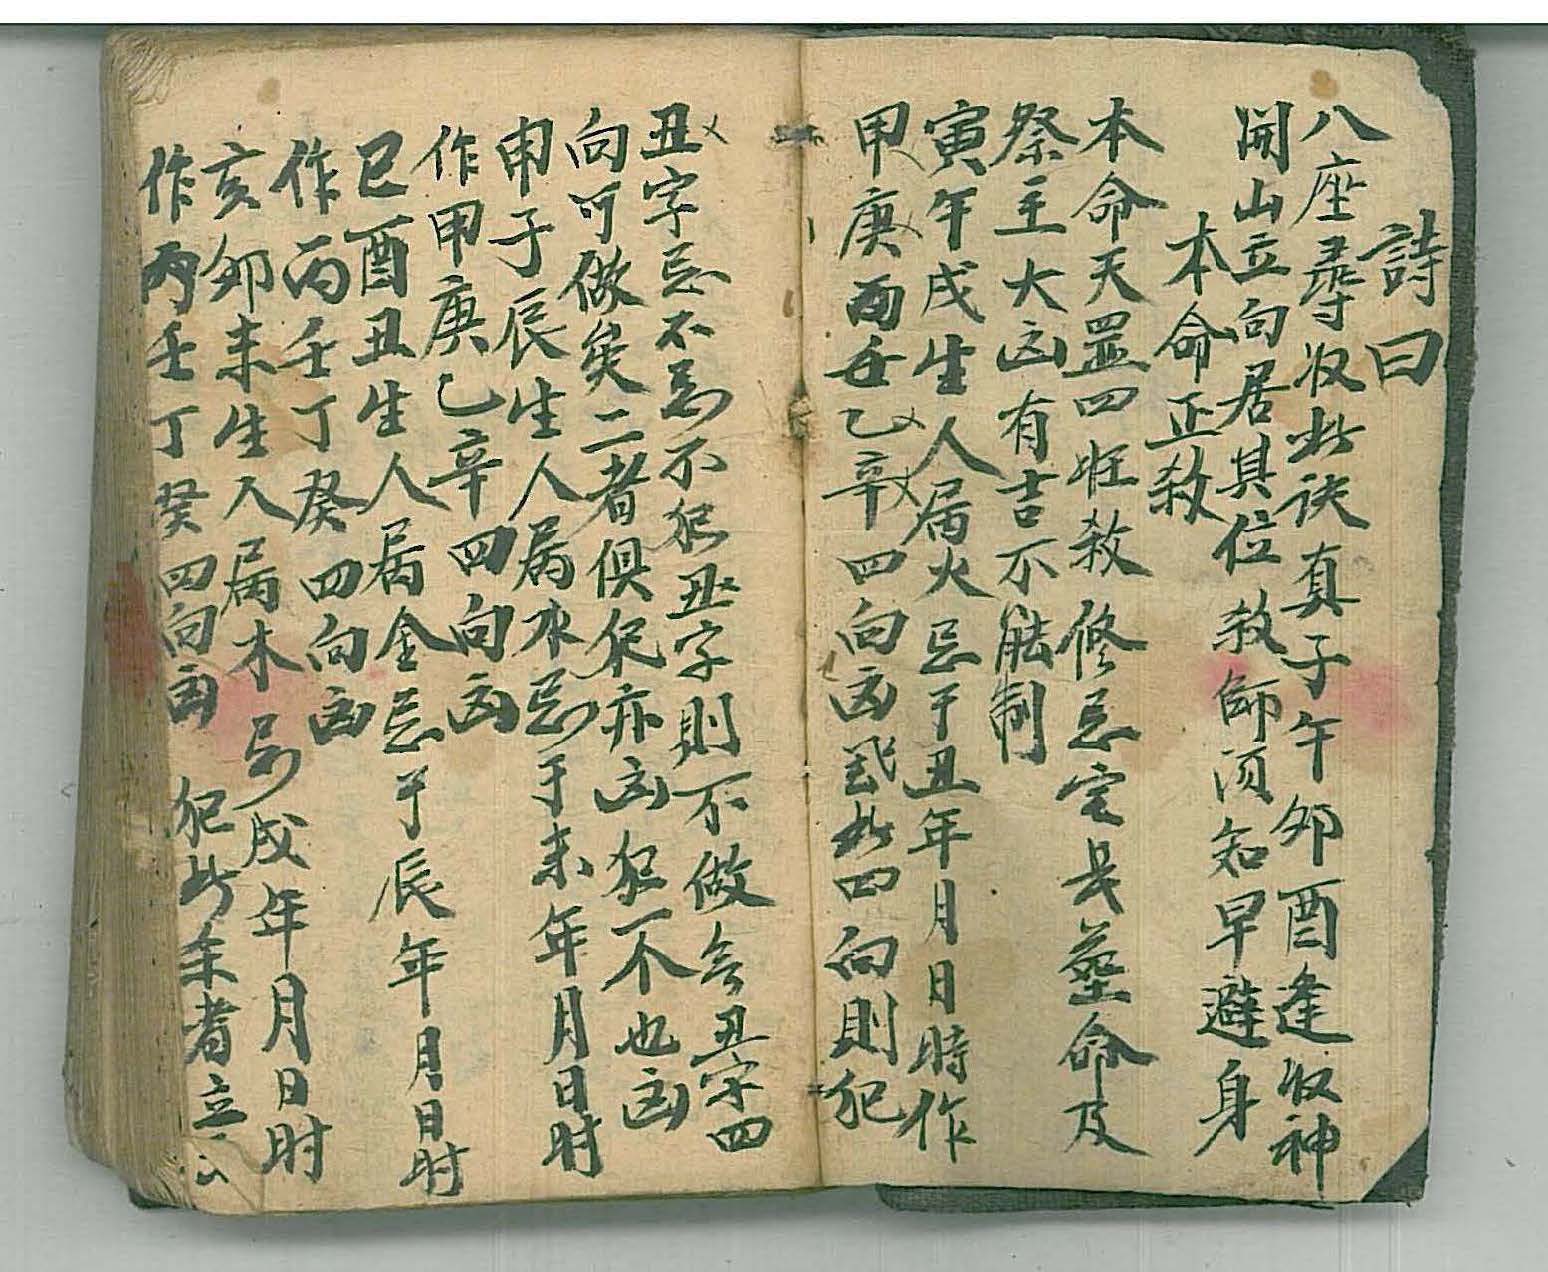 詩曰
八座尋收此訣真子午卯酉逢收神
開山立向居其位救師須知早避身
本命正煞
本命天罡四旺煞修忌定是塟命及
祭主大凶有吉不能制
寅午戌生人属火忌于丑年月日時作
甲庚丙壬乙辛四向凶此四向則犯
丑字忌不忌不犯丑字則不做舍丑字四
向可做矣二者俱作亦凶犯一不也凶
申子辰生人属水忌于未年月日时
作甲庚乙辛四向凶
巳酉丑生人属金忌于辰年月日时
作丙壬丁癸四向凶
亥卯未生人属木忌戌年月日时
作丙壬丁癸四向凶 犯此余者立